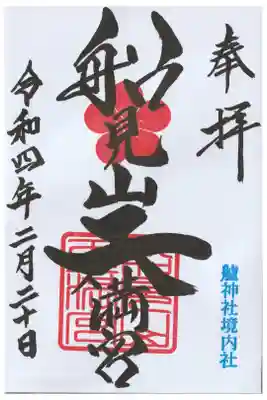 奉拝
船見山天満宮
令和四年二月二十日
鱸神社境内社